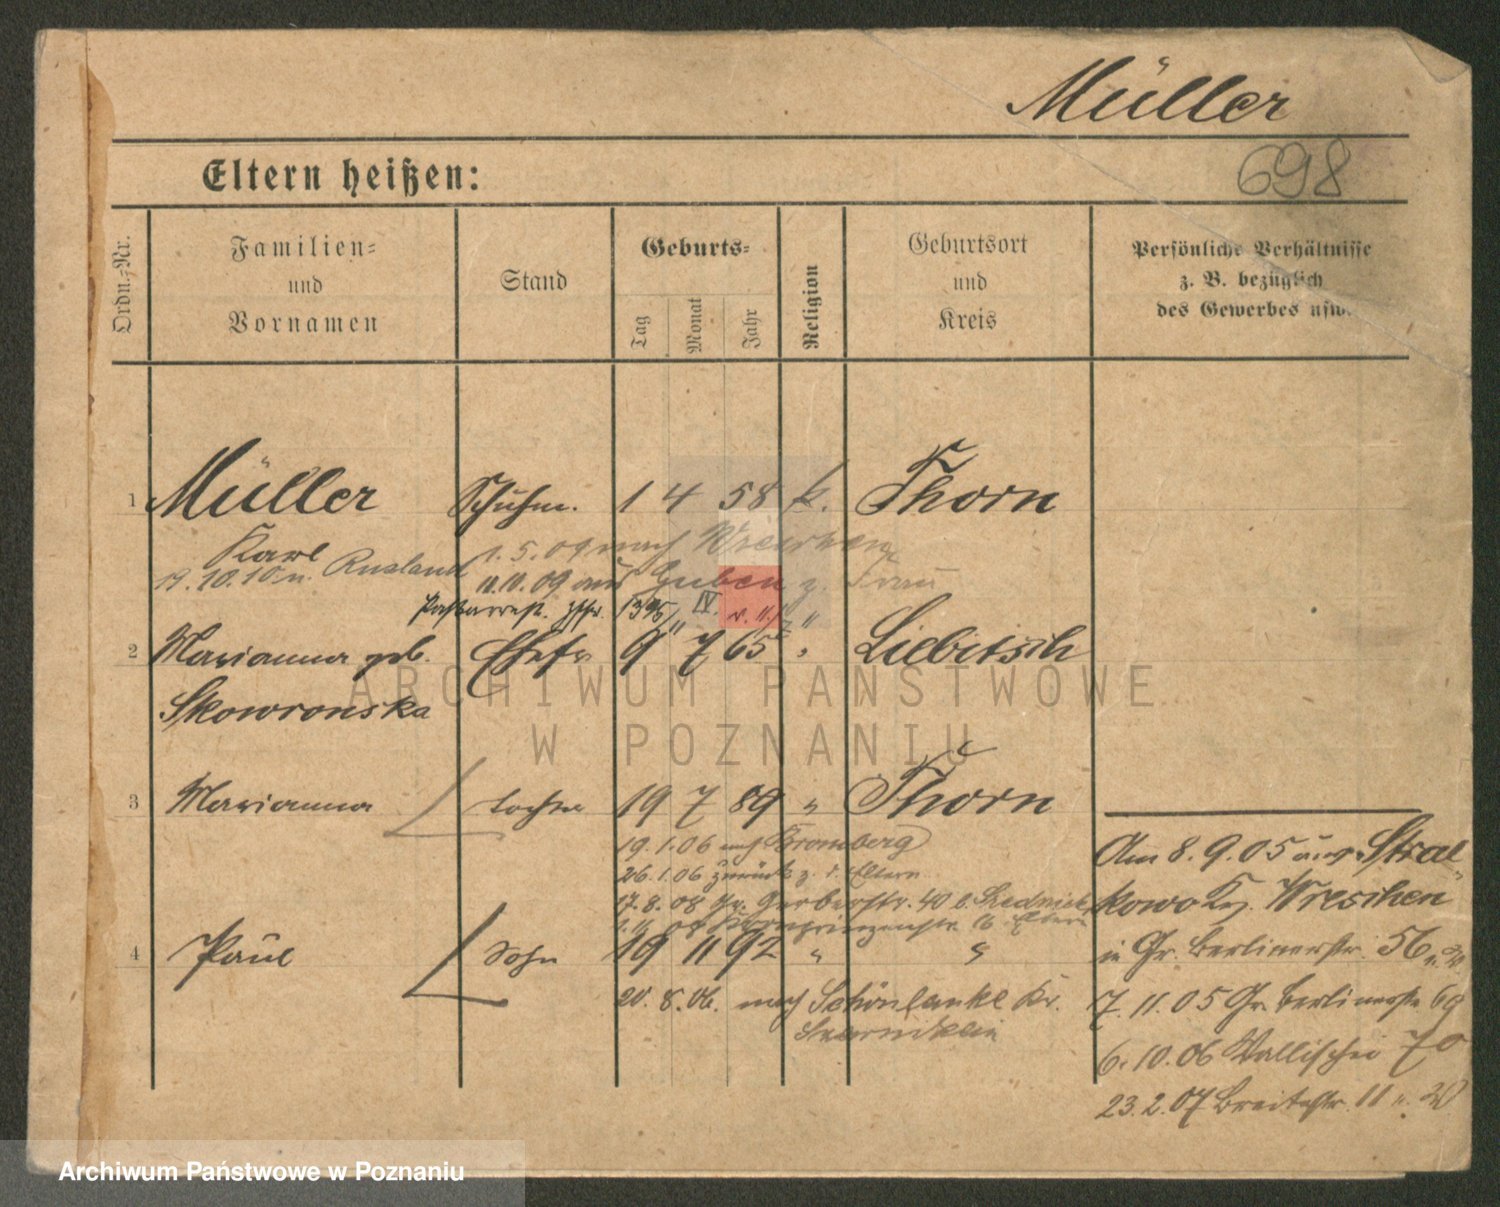 Müller
698
Eltern heißen:
Ordn.-Nr.
Familien-
und
Vornamen
Stand
Geburts-
Tag
Monat
Jahr
Religion
Geburtsort
und
Kreis
Persönliche Verhältnisse
z. B. bezüglich
des Gewerbes usw.
1 Müller Schuhm. 1 4 58 k. Thorn
Karl
1. 5. 09 nach Wreschen
19. 10. 10 n. Rusland
11. 10. 09 aus Guben z. Frau
IV.
2 Marianna geb. Ehefr 9 7 65 " Liebitsch
Skowronska
ARCHIWUM PAŃSTWOWE
W POZNANIU
3 Marianna Tochter 19 7 89 " Thorn
19. 1. 06 nach Bromberg
26. 1. 06 zurück z. d. Eltern
17. 8. 08 Gr. Gerberstr. 40 b.
Kronprinzenstr. Eltern
4 Paul Sohn 19 11 92 " "
20. 8. 06. nach Schönlanke Kr.
Am 8. 9. 05 aus Stral-
kowo Kr. Wreschen
in Gr. Berlinerstr. 56
7. 11. 05 Gr. Berlinerstr 69
6. 10. 06 Wallischei 70
23. 2. 07 Breitestr. 11
Archiwum Państwowe w Poznaniu